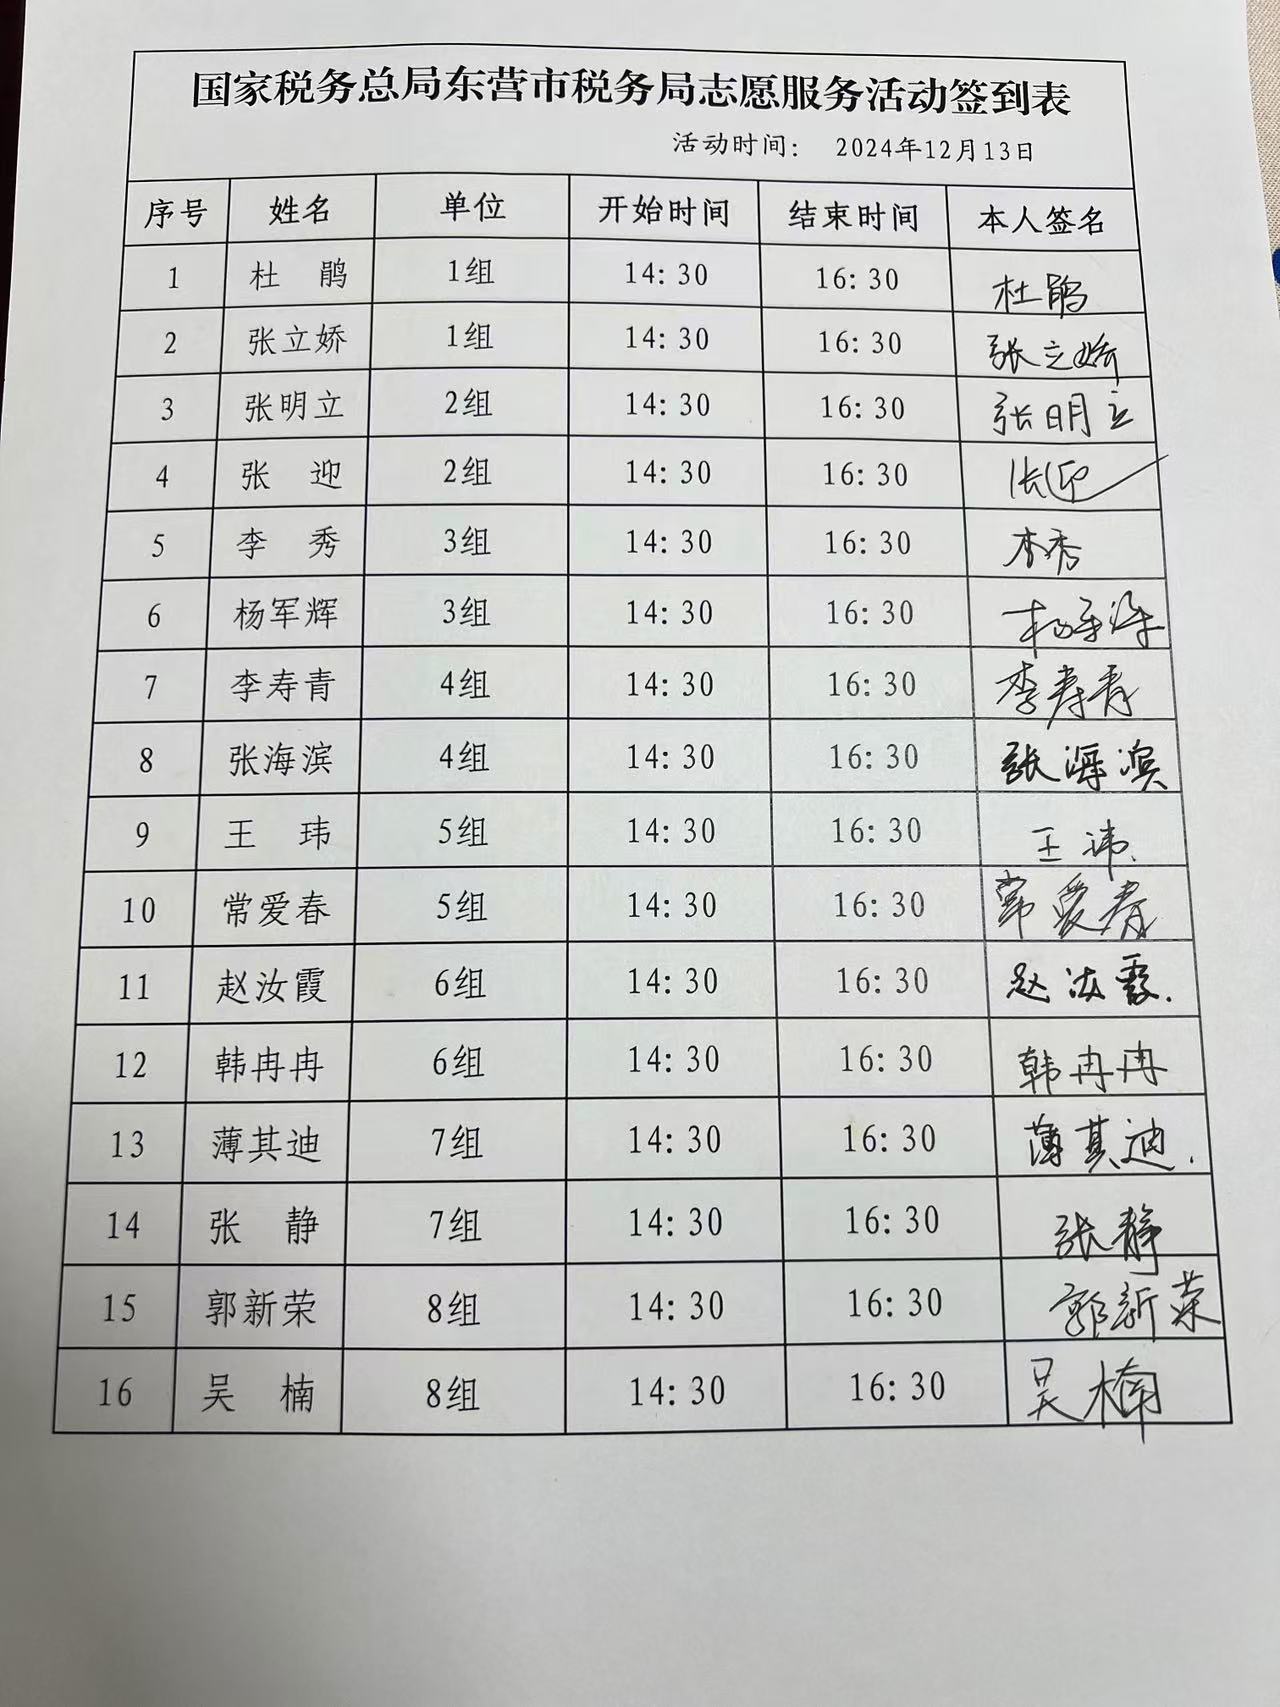 国家税务总局东营市税务局志愿服务活动签到表
活动时间： 2024年12月13日
序号 姓名 单位 开始时间 结束时间 本人签名
1 杜 鹃 1组 14:30 16:30 杜鹃
2 张立娇 1组 14:30 16:30 张立娇
3 张明立 2组 14:30 16:30 张明立
4 张 迎 2组 14:30 16:30 张迎
5 李 秀 3组 14:30 16:30 李秀
6 杨军辉 3组 14:30 16:30 杨军辉
7 李寿青 4组 14:30 16:30 李寿青
8 张海滨 4组 14:30 16:30 張海滨
9 王 玮 5组 14:30 16:30 王玮
10 常爱春 5组 14:30 16:30 常爱春
11 赵汝霞 6组 14:30 16:30 赵汝霞
12 韩冉冉 6组 14:30 16:30 韩冉冉
13 薄其迪 7组 14:30 16:30 薄其迪
14 张 静 7组 14:30 16:30 张静
15 郭新荣 8组 14:30 16:30 郭新荣
16 吴 楠 8组 14:30 16:30 吴楠